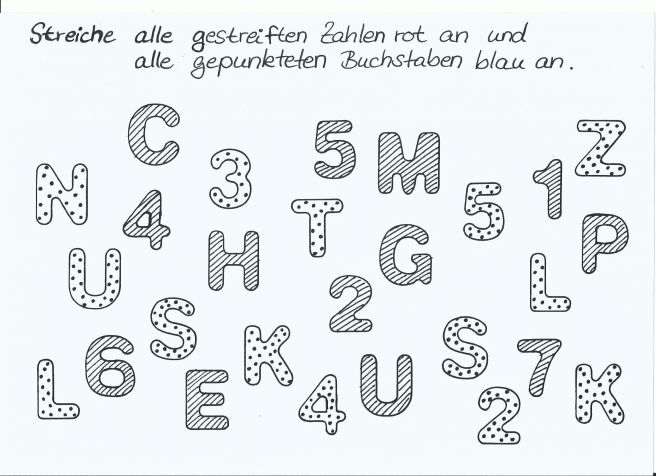 Streiche alle gestreiften Zahlen rot an und
alle gepunkteten Buchstaben blau an.
C 5 M Z
N 3 1
4 T 5 P
H G
U L
2
S S
6 K 7
L E 4 U 2 K